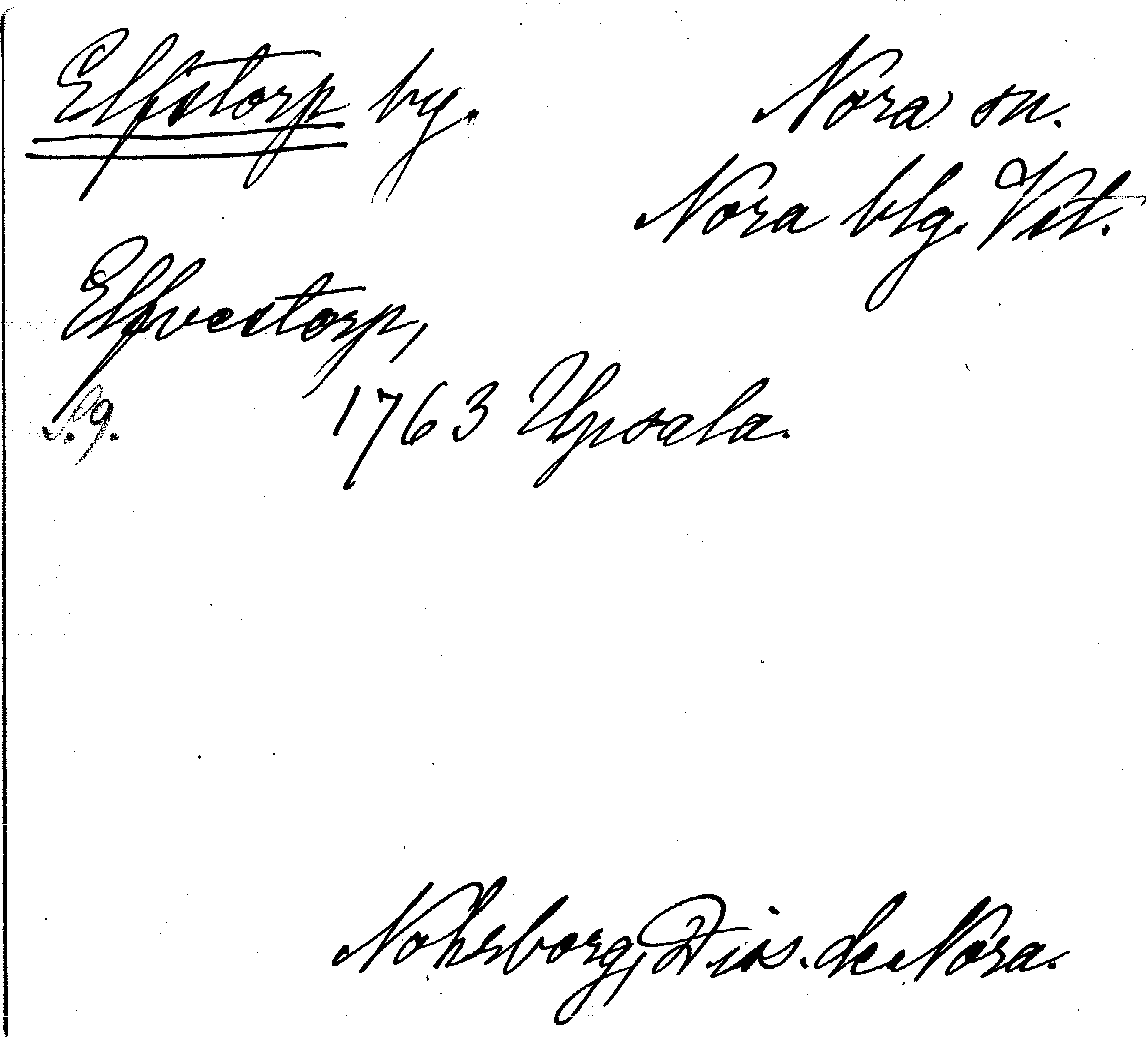 Elfstorp by. Nora sn.
Nora blg. Vstl.
Elfvestorp,
S.9. 1763 Upsala.
Nohrborg, Diss. de Nora.